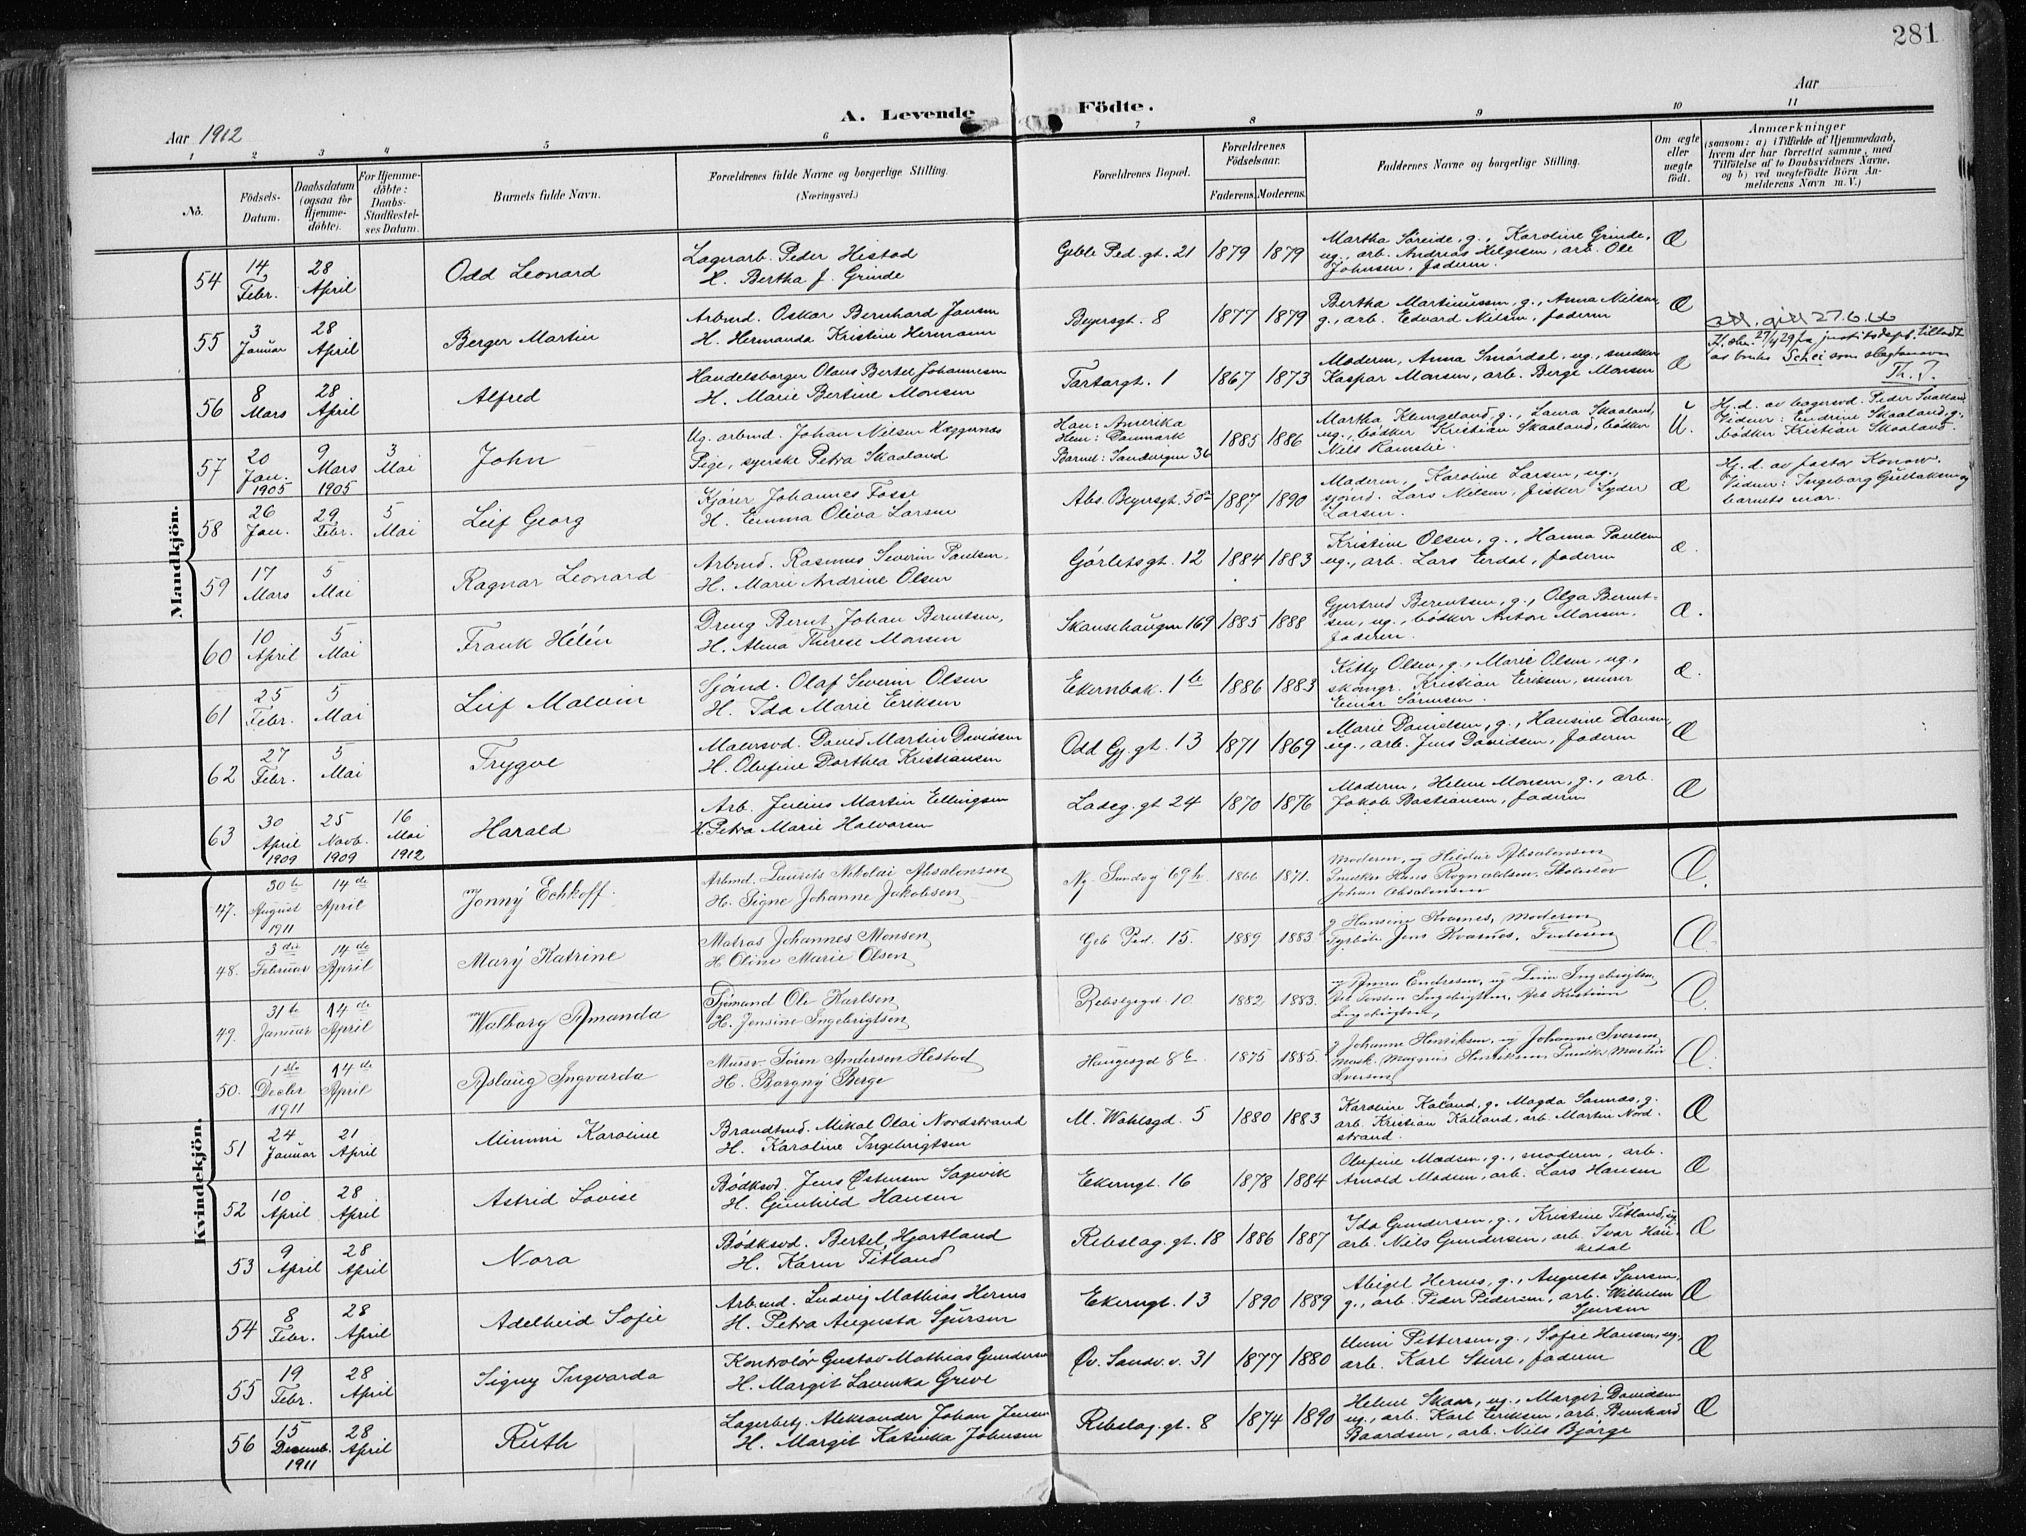 281
Aar 1912
A. Levende Födte.
Aar
1 2 3 4 5 6 7 8 9 10 11
No.
Födsels-
Datum.
Daabsdatum
(ogsaa for
Hjemme-
döbte).
For Hjemme-
döbte:
Daabs-
Stadfæstel-
ses Datum.
Barnets fulde Navn.
Forældrenes fulde Navne og borgerlige Stilling.
(Næringsvei.)
Forældrenes Bopæl.
Forældrenes
Födselsaar.
Faderens. Moderens.
Faddernes Navne og borgerlige Stilling.
Om ægte
eller
uægte
födt.
Anmærkninger
(saasom: a) i Tilfælde af Hjemmedaab,
hvem der har forrettet samme, med
Tilföielse af to Daabsvidners Navne,
og b) ved uægtefödte Börn An-
melderens Navn m. V.)
Mandkjön.
54 14 Febr. 28 April Odd Leonard
Lagerarb. Peder Histad
H. Bertha J. Grinde
Geble Ped. gt. 21 1879 1879
Martha Søreide, g., Karoline Grinde,
ug., arb. Andreas Helgesen, arb. Ole
Johnsen, faderen.
Æ
55 3 Januar 28 April Berger Martin
Arbmd. Oskar Bernhard Jansen
H. Hermanda Kristine Hermann
Beyersgt. 8 1877 1879
Bertha Martinussen, g., Anna Nilsen,
g., arb. Edvard Nilsen, faderen
Æ
56 8 Mars 28 April Alfred
Handelsborger Olaus Bertel Johannesen
H. Marie Bertine Monsen
Tartargt. 1 1867 1873
Moderen, Anna Smørdal, ug., snedker
Kaspar Monsen, arb. Berge Monsen
Æ
att. gitt 27.6.66
27/4 29 fra justitsdept. tilladt
at bruke Schei som slegtsnavn
Th. J.
57 20 Jan. 1905 9 Mars 1905 3 Mai John
Ug. arbmd. Johan Nilsen Hæggernæs
Pige, syerske Petra Skaaland
Han: Amerika
Hun: Danmark
Barnet: Sandvigen 36
1885 1886
Martha Klungeland, g., Laura Skaaland,
ug., bødker Kristian Skaaland, bødker
Nils Ramslie.
U.
Hj. d. av bagersvd. Peder Svalland
Vidner: Endrine Skaaland, g.,
bødker Kristian Skaaland.
58 26 Jan. 29 Febr. 5 Mai Leif Georg
Kjører Johannes Fosse
H. Emma Oliva Larsen
Abs. Beyersgt. 50a 1887 1890
Moderen, Karoline Larsen, ug.,
sjømd. Lars Nilsen, fisker Lyder
Larsen.
Æ
Hj. d. av pastor Konow.
Vidner: Ingeborg Gullaksen og
barnets mor.
59 17 Mars 5 Mai Ragnar Leonard
Arbmd. Rasmus Severin Paulsen.
H. Marie Andrine Olsen
Gørbitzgt. 12 1884 1883
Kristine Olsen, g., Hanna Paulsen
ug., arb. Lars Erdal, faderen
Æ.
60 10 April 5 Mai Frank Hélén
Dreng Bernt Johan Berntsen,
H. Alma Therese Monsen
Skansehaugen 169 1885 1888
Gjertrud Berentsen, g., Olga Bernt-
sen, ug., bødker Anton Monsen,
faderen.
Æ.
61 25 Febr. 5 Mai Leif Malvin
Sjømd. Olaf Severin Olsen
H. Ida Marie Eriksen
Ekernbak. 1b 1886 1883
Kitty Olsen, g., Marie Olsen, ug.,
skomgr. Kristian Eriksen, murer
Einar Sørensen.
Æ.
62 27 Febr. 5 Mai Trygve
Malersvd. David Martin Davidsen
H. Olufine Dorthea Kristiansen
Odd Gj. gt. 13 1871 1869
Marie Danielsen, g., Hansine Hansen,
ug., arb. Jens Davidsen, faderen
Æ
63 30 April 1909 25 Novb. 1909 16 Mai 1912 Harald
Arb. Julius Martin Ellingsen
H. Petra Marie Halvorsen
Ladeg. gt 24 1870 1876
Moderen, Helene Monsen, g., arb.
Jakob Bastiansen, faderen
Æ
Kvindekjön.
47. 30te August 1911 14de April Jonny Echhoff
Arbmd. Laurits Nikolai Absalonsen
H. Signe Johanne Jakobsen
Ny. Sandv 69h 1866 1871.
Moderen, ug Hildur Absalonsen
Snedker Hans Rognaldsen, Skoleelev
Johan Absalonsen
Æ.
48. 3die Februar 14de April Mary Katrine
Matros Johannes Monsen
H Oline Marie Olsen
Geb Ped. 15. 1889 1883.
g Hansine Kvarnes, Moderen
Fyrbøt. Jens Kvarnes, Faderen
Æ.
49. 31te Januar 14de April Walborg Amanda
Sjømand Ole Karlsen
H. Jensine Ingebrigtsen
Rebslgrgd. 10 1882 1883.
ug Anna Endresen, ug Lina Ingebrigtsen,
Arb Torsten Ingebrigtsen, Arb Kristian
Ingebrigtsen,
Æ.
50. 1ste Decbr 1911 14de April Aslaug Ingvarda
Mursv. Søren Andersen Hestad
H. Borgny Berge
Haugesgd 8b 1875 1885.
g Johanne Henriksen, ug Johanne Iversen,
Mask. Magnus Henriksen Snedk. Martin
Iversen
Æ.
51 24 Januar 21 April Mimmi Karoline
Brandtmd. Mikal Olai Nordstrand
H. Karoline Ingebrigtsen
M. Wahlsgd. 5 1880 1883
Karoline Kaland, g. Magda Sannes, g.
arb. Kristian Kalland, arb. Martin Nord-
strand.
Æ
52 10 April 28 April Astrid Lovise
Bødksvd. Jens Østensen Sagevik
H. Gunhild Hansen
Ekerngt. 16 1878 1884
Olufine Madsen, g., moderen, arb.
Arnold Madsen, arb. Lars Hansen
Æ
53 9 April 28 April Nora
Bødksvd. Bertel Hjortland
H. Karen Titland
Rebslag. gt. 18 1886 1887
Ida Gundersen, g., Kristine Titland, ug.
arb. Nils Gundersen, arb. Ivar Hau-
kedal
Æ
54 8 Febr. 28 April Adelheid Sofie
Arbmd. Ludvig Mathias Hernes
H. Petra Augusta Sjursen
Ekerngt. 13 1890 1889
Abigel Hernes, g., Augusta Sjursen,
g., arb. Peder Pedersen, arb. Wilhelm
Sjursen
Æ
55 19 Febr. 28 April Signy Ingvarda
Kontrolør Gustav Mathias Gundersen
H. Margit Lavinka Greve
Øv. Sandv. v. 31 1877 1880
Unni Pettersen, g., Sofie Hansen, ug.,
arb. Karl Sture, faderen
Æ
56 15 Decemb. 1911 28 April Ruth
Lagerbetj. Aleksander Johan Jensen
H. Margit Katinka Johnsen
Rebslag. gt. 8 1874 1890
Helene Skaar, ug., Margit Davidsen
ug., arb. Karl Eriksen, arb. Bernhard
Baardsen, arb. Nils Bjørge
Æ